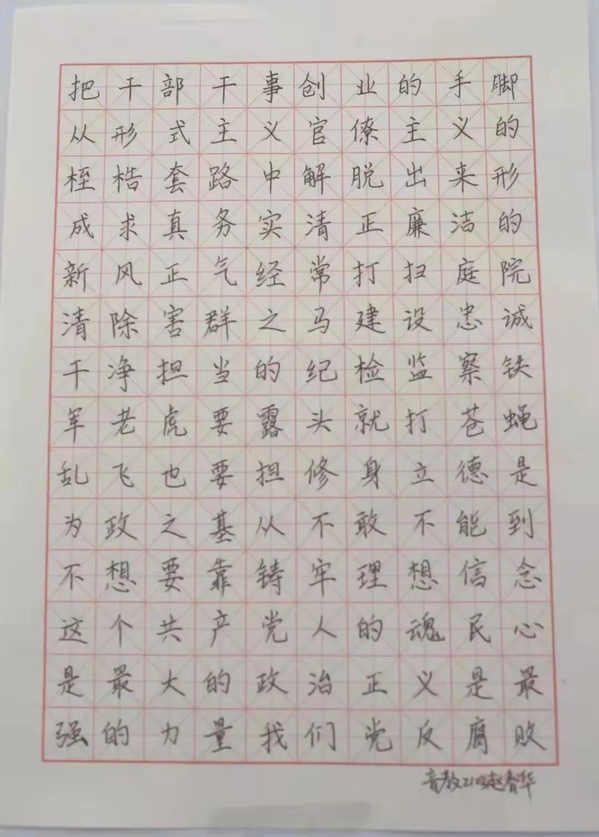 把干部干事创业的手脚
从形式主义官僚主义的
桎梏套路中解脱出来形
成求真务实清正廉洁的
新风正气经常打扫庭院
清除害群之马建设忠诚
干净担当的纪检监察铁
军老虎要露头就打苍蝇
乱飞也要担修身立德是
为政之基从不敢不能到
不想要靠铸牢理想信念
这个共产党人的魂民心
是最大的政治正义是最
强的力量我们党反腐败
音教2102赵春华